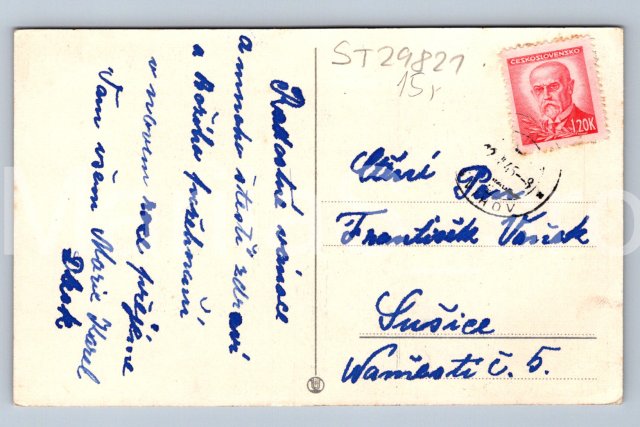 Radostné vánoce
a mnoho štestí zdraví
a Božího požehnání
v novém roce přejeme
Vám všem Marie Karel
ST29821
15,
ČESKOSLOVENSKO
1.20K
Ctění Pan
František Vaňek
Sušice
Naměstí č. 5.